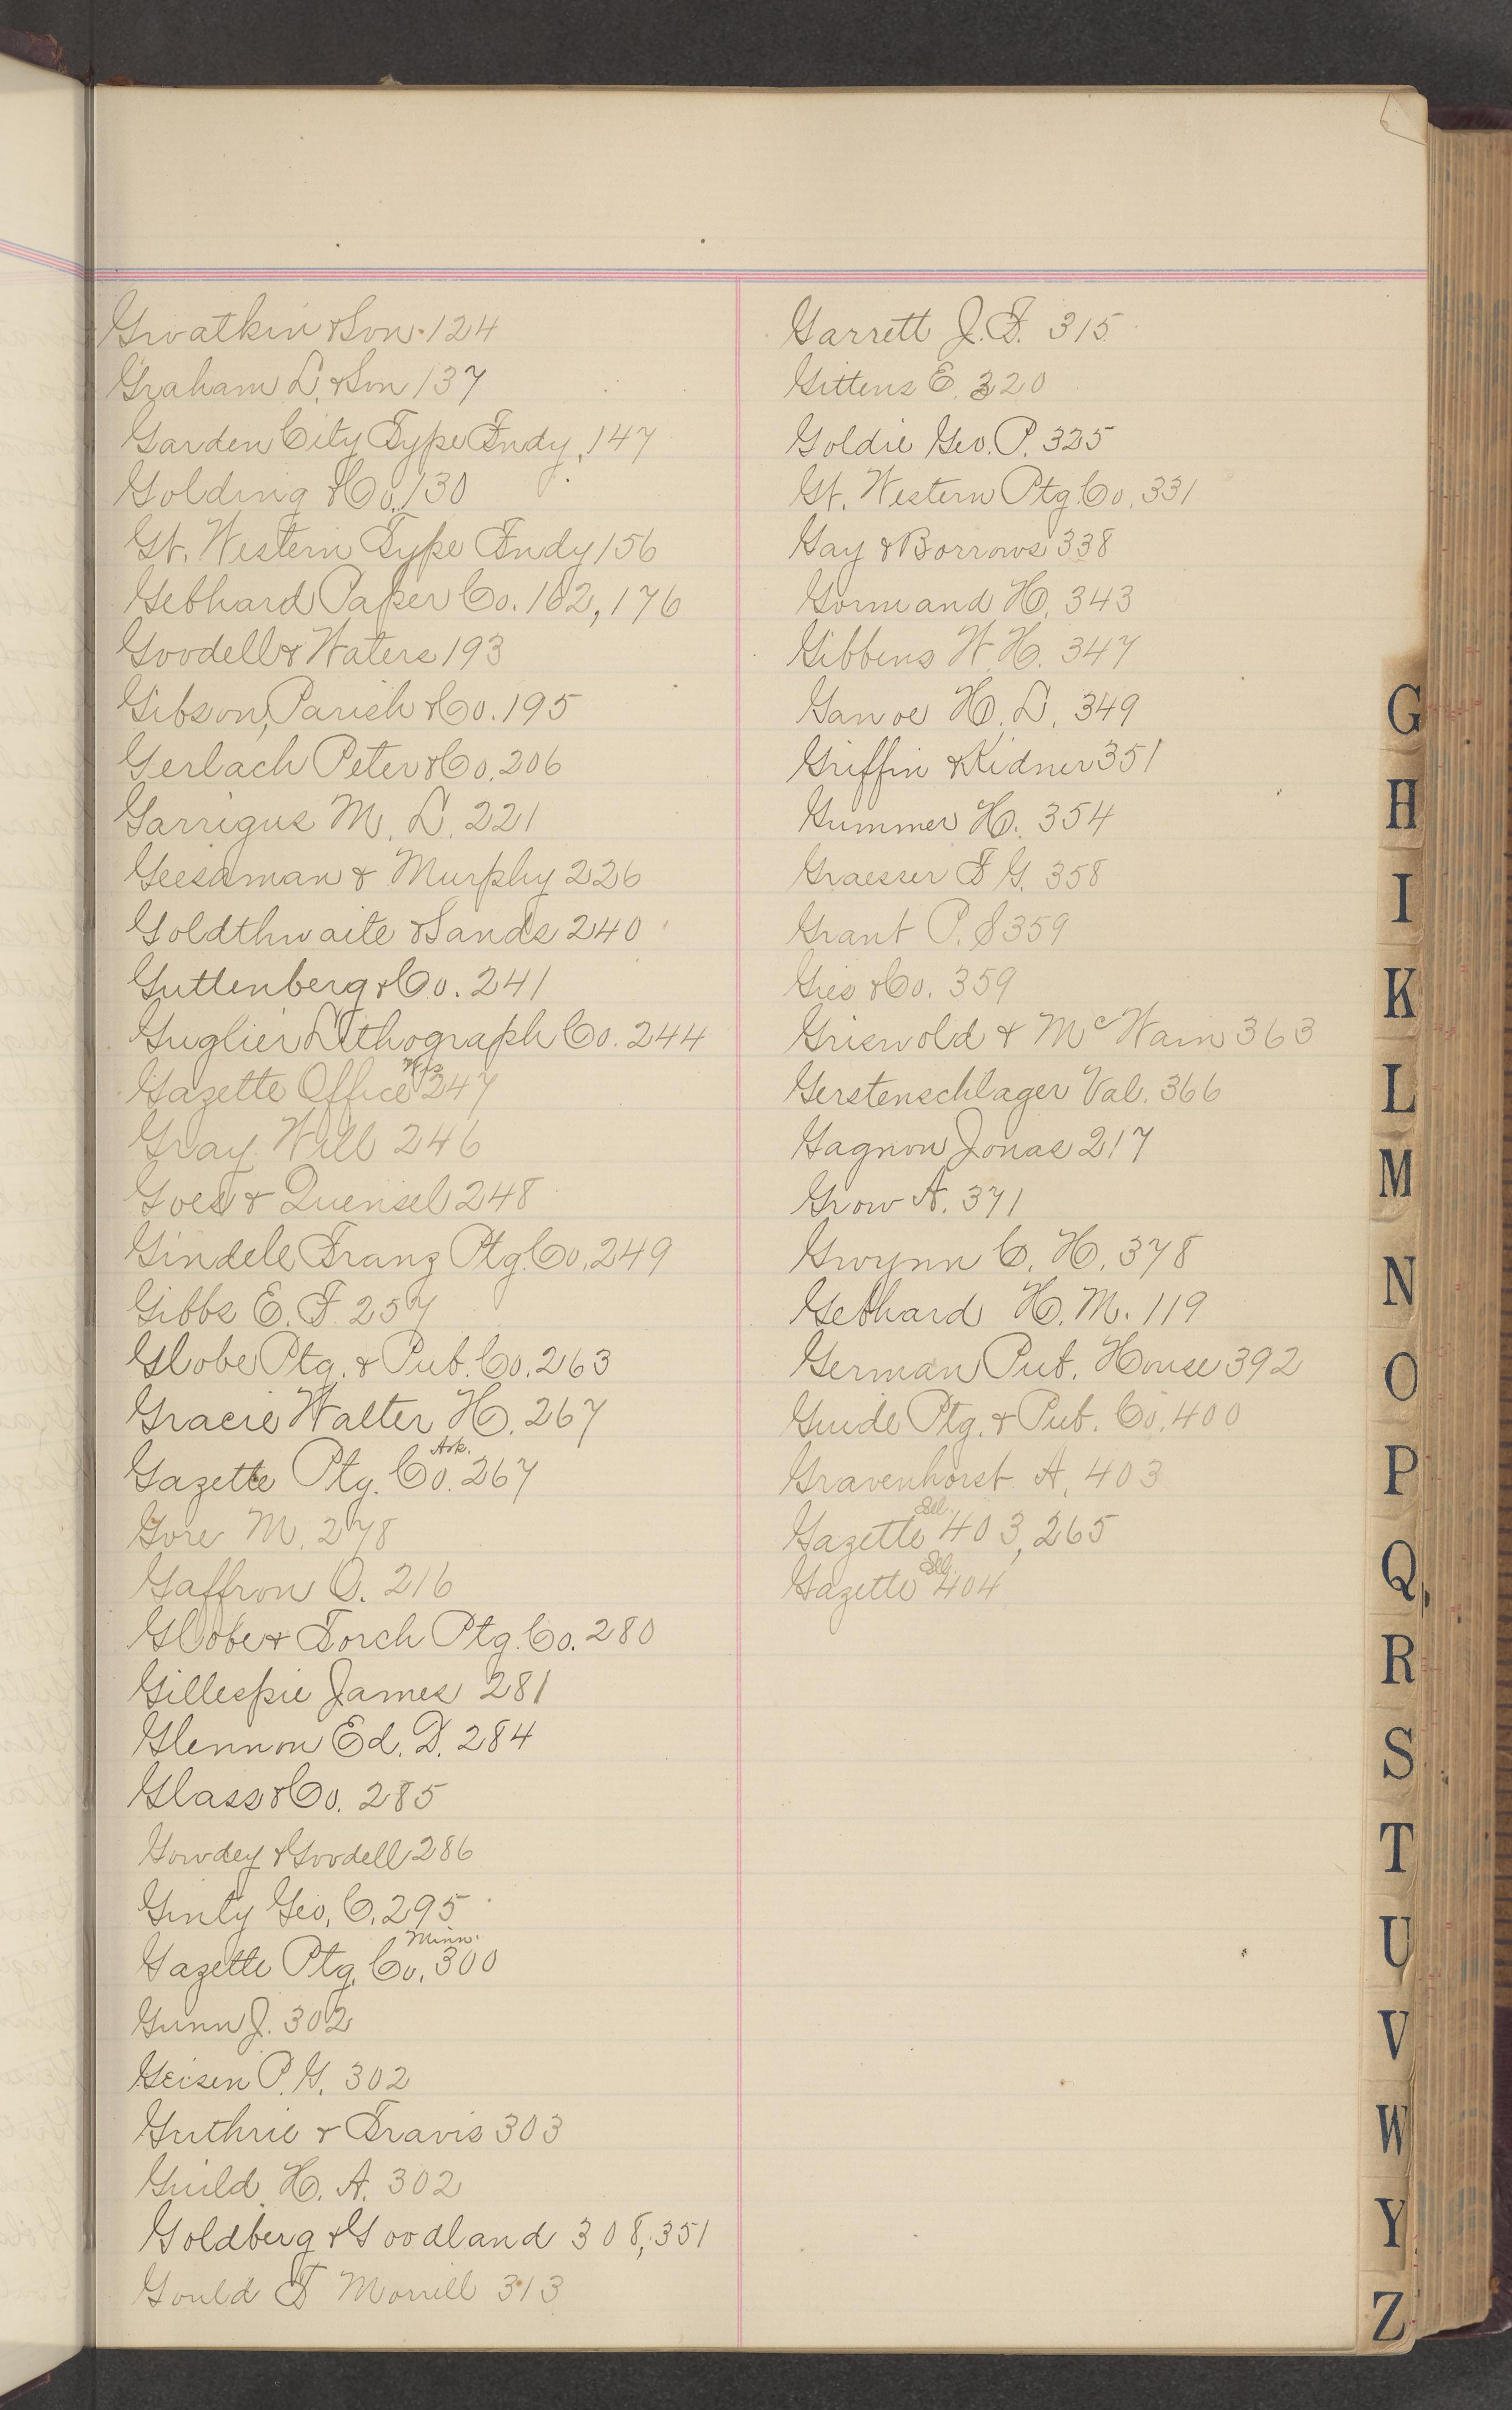 Gwatkin & Son. 124
Graham L. & Son 137
Garden City Type Fndy. 147
Golding & Co. 130
Gt. Western Type Fndy 156
Gebhard Paper Co. 162, 176
Goodell & Waters 193
Gibson, Parish & Co. 195
Gerlach Peter & Co. 206
Garrigus M. L. 221
Geesaman & Murphy 226
Goldthwaite & Sands 240
Guttenberg & Co. 241
Gugler Lithograph Co. 244
Gazette Office Wis 247
Gray Will 246
Goes & Quensel 248
Gindele Franz Ptg. Co. 249
Gibbs E. F. 257
Globe Ptg. & Pub. Co. 263
Gracie Walter H. 267
Gazette Ptg. Co. Ark. 267
Gore M. 278
Gaffron O. 216
Globe & Torch Ptg. Co. 280
Gillespie James 281
Glennon Ed. D. 284
Glass & Co. 285
Gowdey & Goodell 286
Ginty Geo. C. 295
Gazette Ptg. Co. Minn. 300
Gunn J. 302
Geisen P. G. 302
Guthrie & Travis 303
Guild H. A. 302
Goldberg & Goodland 308, 351
Gould F Morrill 313
Garrett J. F. 315
Gittens E. 320
Goldie Geo. P. 325
Gt. Western Ptg. Co. 331
Gay & Borrows 338
Gormand H. 343
Gibbens W. H. 347
Ganoe H. L. 349
Griffin & Kidner 351
Gummer H. 354
Graesser F G. 358
Grant P. S 359
Gies & Co. 359
Griswold & McWain 363
Gerstenschlager Val. 366
Gagnon Jonas 217
Grow A. 371
Gwynn C. H. 378
Gebhard H. M. 119
German Pub. House 392
Guide Ptg. & Pub. Co. 400
Gravenhorst A. 403
Gazette 403, 265
Gazette 404
G
H
I
K
L
M
N
O
P
Q
R
S
T
U
V
W
Y
Z